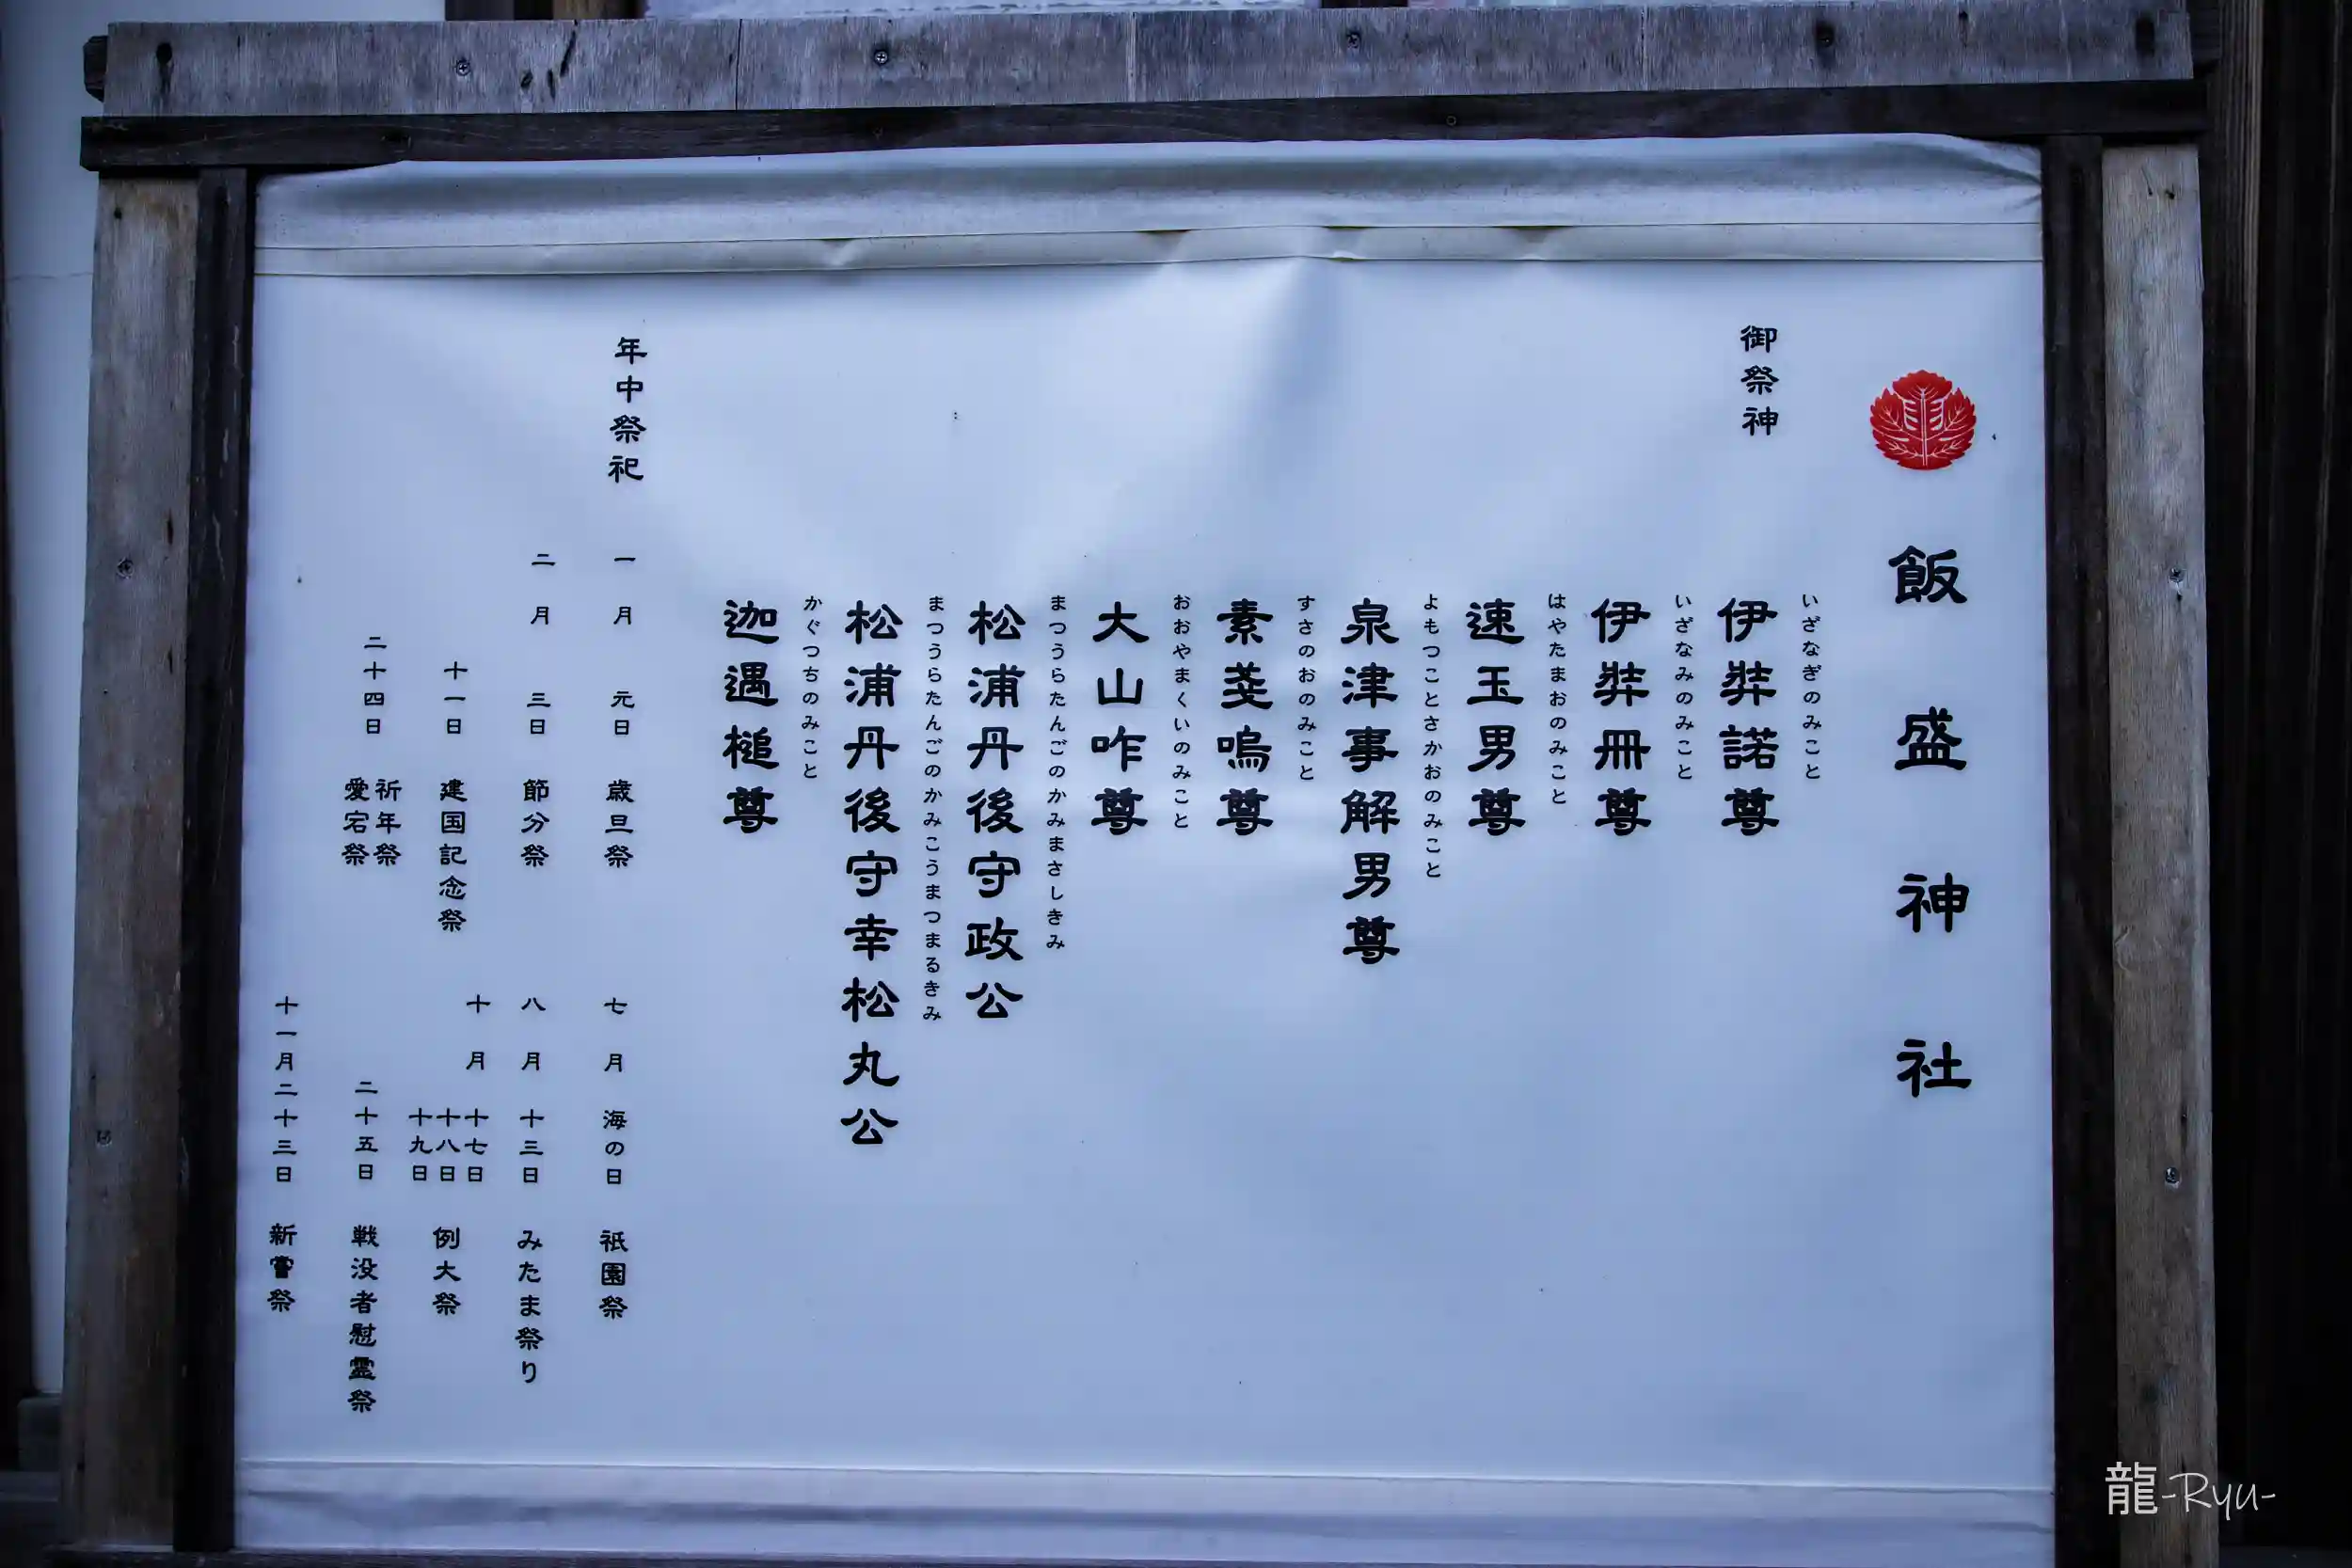 飯盛神社
御祭神
いざなぎのみこと
伊弉諾尊
いざなみのみこと
伊弉冊尊
はやたまおのみこと
速玉男尊
よもつことさかおのみこと
泉津事解男尊
すさのおのみこと
素戔嗚尊
おおやまくいのみこと
大山咋尊
まつうらたんごのかみまさしきみ
松浦丹後守政公
まつうらたんごのかみこうまつまるきみ
松浦丹後守幸松丸公
かぐつちのみこと
迦遇槌尊
年中祭祀
一月 元日 歳旦祭
二月 三日 節分祭
十一日 建国記念祭
二十四日 祈年祭
愛宕祭
七月 海の日 祇園祭
八月 十三日 みたま祭り
十月 十七日
十八日 例大祭
十九日
二十五日 戦没者慰霊祭
十一月二十三日 新嘗祭
龍-Ryu-